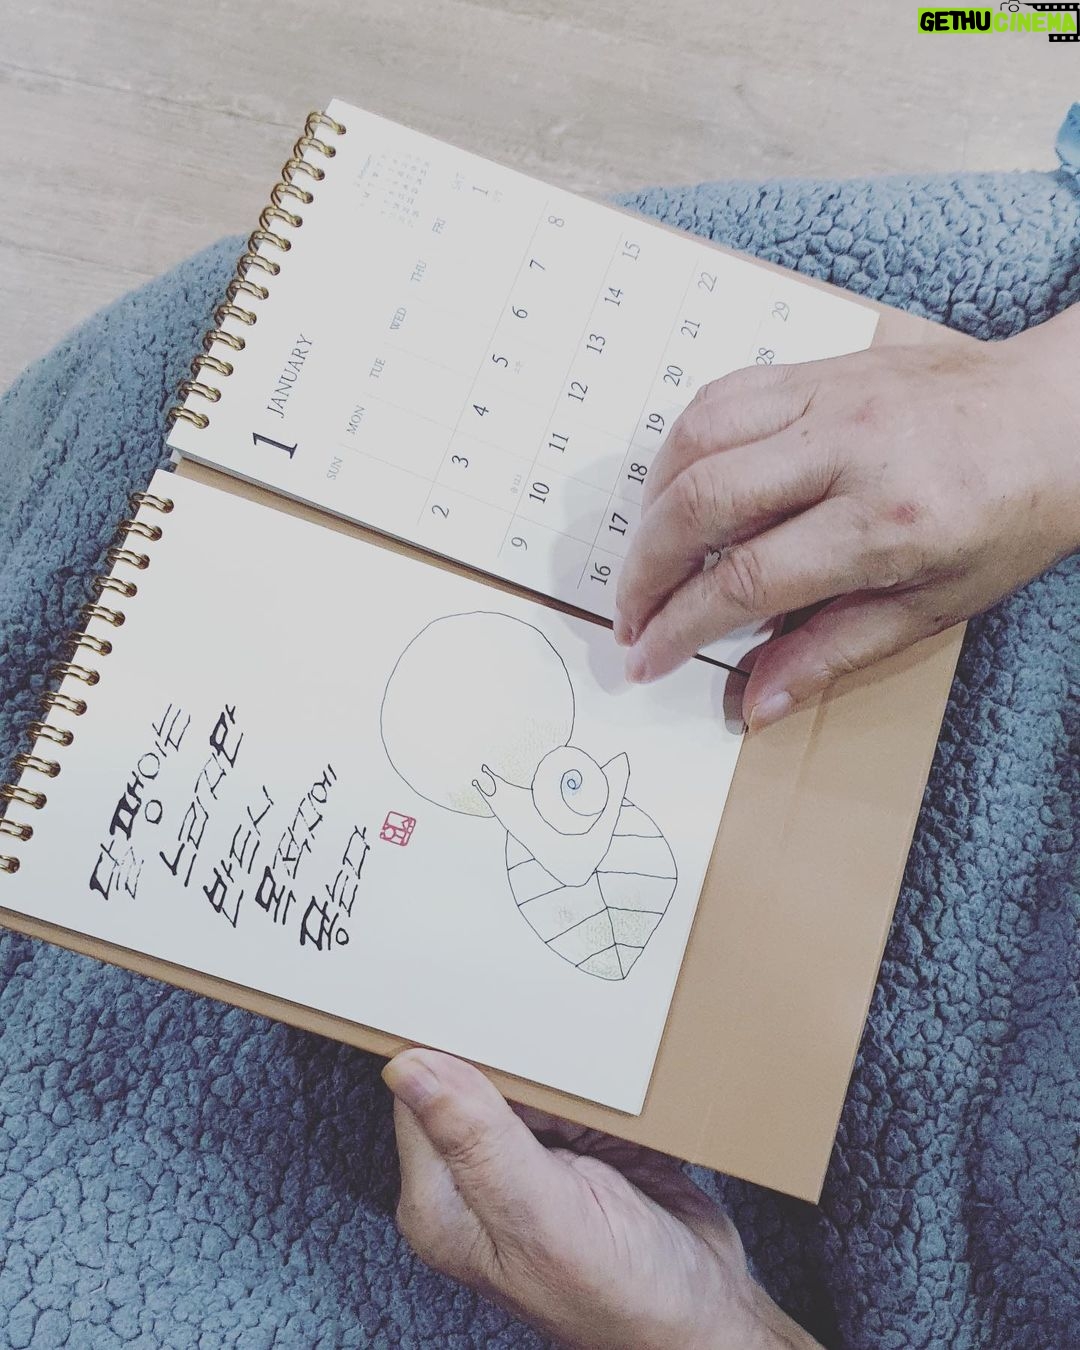 GETHUCINEMA
1 JANUARY
SUN MON TUE WED THU FRI SAT
1
2 3 4 5 6 7 8
9 10 11 12 13 14 15
16 17 18 19 20 21 22
28 29
달팽이는
느리지만
반드시
목적지에